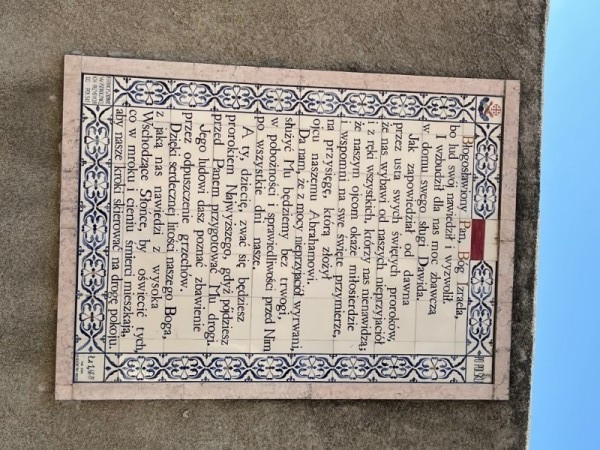 Błogosławiony Pan, Bóg Izraela,
bo lud swój nawiedził i wyzwolił.
I wzbudził dla nas moc zbawczą
w domu swego sługi Dawida.
Jak zapowiedział od dawna
przez usta swych świętych proroków,
że nas wybawi od naszych nieprzyjaciół
i z ręki wszystkich, którzy nas nienawidzą;
że naszym ojcom okaże miłosierdzie
i wspomni na swe święte przymierze,
na przysięgę, którą złożył
ojcu naszemu Abrahamowi.
Da nam, że z mocy nieprzyjaciół wyrwani,
służyć Mu będziemy bez trwogi
w pobożności i sprawiedliwości przed Nim
po wszystkie dni nasze.
A ty, dziecię, zwać się będziesz
prorokiem Najwyższego, gdyż pójdziesz
przed Panem przygotować Mu drogi.
Jego ludowi dasz poznać zbawienie
przez odpuszczenie grzechów.
Dzięki serdecznej litości naszego Boga,
z jaką nas nawiedzi z wysoka
Wschodzące Słońce, by oświecić tych,
co w mroku i cieniu śmierci mieszkają,
aby nasze kroki skierować na drogę pokoju.